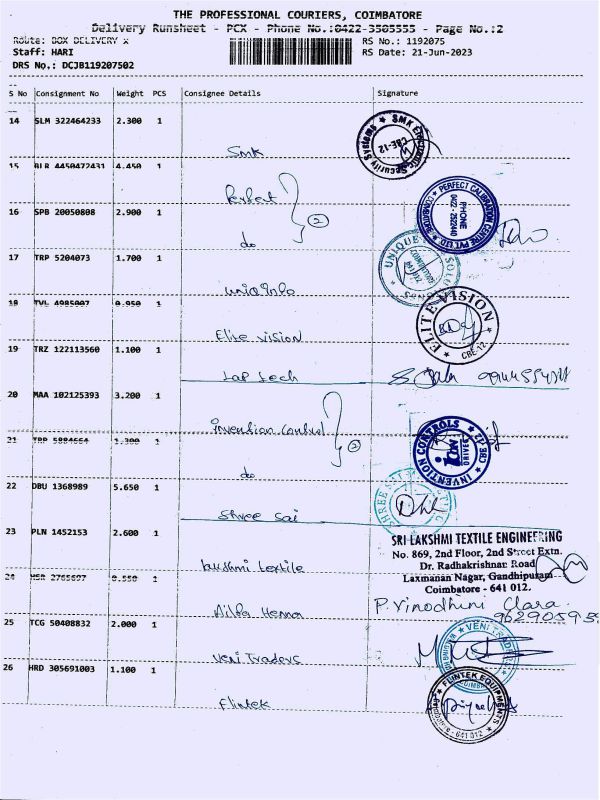 THE PROFESSIONAL COURIERS, COIMBATORE
Delivery Runsheet - PCX - Phone No.:0422-3505555 - Page No.:2
Route: BOX DELIVERY X
RS No.: 1192075
Staff: HARI
RS Date: 21-Jun-2023
DRS No.: DCJB119207502
S No Consignment No Weight PCS Consignee Details Signature
14 SLM 322464233 2.300 1
SMK ELECTRONIC Security Systems CBE-12
Smk
15 BLR 4450472431 4.450 1
Perfect
PERFECT CALIBRATION CENTRE PVT LTD COIMBATORE
PHONE
16 SPB 20050808 2.900 1
2
do
17 TRP 5204073 1.700 1
UNIQUE
Uniqinfo
18 TVL 4985007 0.950 1
ELITE VISION CBE-12
Elite vision
19 TRZ 122113560 1.100 1
Lap tech
20 MAA 102125393 3.200 1
invention control
INVENTION CONTROLS CBE-12
21 TRP 5884664 1.300 1
2
do
22 DBU 1368989 5.650 1
SHREE SAI
Shree sai
23 PLN 1452153 2.600 1
SRI LAKSHMI TEXTILE ENGINEERING
No. 869, 2nd Floor, 2nd Street Extn.
Dr. Radhakrishnan Road
lakshmi textile
Laxmanan Nagar, Gandhipuram
24 MSR 2765697 0.550 1
Coimbatore - 641 012.
P. Vinodhini Clara
Henna
25 TCG 50408832 2.000 1
VENI TRADERS
Veni Traders
26 HRD 305691003 1.100 1
FLINTEK EQUIPMENTS
641 012
Flintek